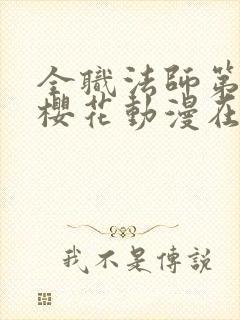 全職法師第
櫻花動漫在
我不是傳說